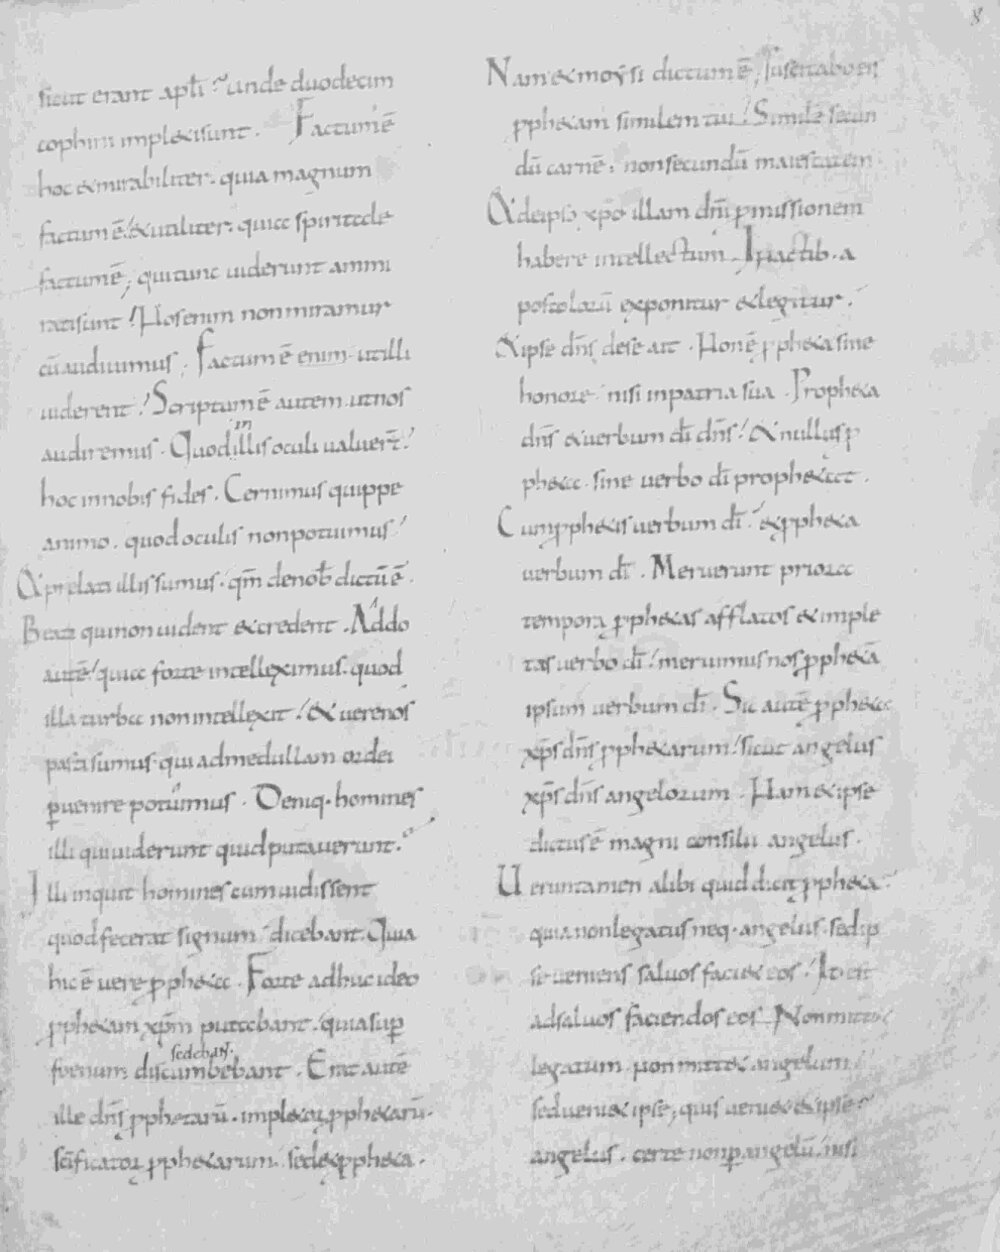 8
sicut erant apłi? unde duodecim
cophini impleti sunt. Factum ē
hoc & mirabiliter. quia magnum
factum ē. & utiliter. quia spiritale
factum ē; qui tunc uiderunt ammi
rati sunt! Nos enim non miramur
cū audiuimus. Factum ē enim ut illi
uiderent! Scriptum ē autem ut nos
audiremus. Quod in illis oculi ualuer̄t!
hoc in nobis fides. Cernimus quippe
animo. quod oculis non potuimus!
& prelati illis sumus. qm̄ de nob̄ dictū ē.
Beati qui non uident & credent. Addo
autē! quia forte intelleximus. quod
illa turba non intellexit! & uere nos
pasti sumus qui ad medullam ordei
ꝑuenire potuimus. Deniq. homines
illi qui uiderunt quid putauerunt.
Illi inquit homines cum uidissent
quod fecerat signum dicebant. Quia
hic ē uere ꝓpheta. Forte adhuc ideo
ꝓphetam xp̄m putabant. quia suꝑ
foenum discumbebant sedebant. Erat autē
ille dn̄s ꝓphetarū. impletor ꝓphetarū.
sc̄ificator ꝓphetarum. sed & ꝓpheta.
Nam & moysi dictum ē; suscitabo eis
ꝓphetam similem tui! Similē secun
dū carnē. non secundū maiestatem
& de ipso xp̄o illam dn̄i ꝓmissionem
habere intellectum. In actib. a
postolorū exponitur & legitur.
& ipse dn̄s de se ait. Non ē ꝓpheta sine
honore nisi in patria sua. Propheta
dn̄s & uerbum dī dn̄s! & nullus ꝓ
pheta. sine uerbo dī prophetat.
Cum ꝓphetis uerbum dī. & ꝓpheta
uerbum dī. Meruerunt priora
tempora ꝓphetas afflatos & imple
tos uerbo dī! meruimus nos ꝓphetā
ipsum uerbum dī. Sic autē ꝓpheta
xp̄s dn̄s ꝓphetarum! sicut angelus
xp̄s dn̄s angelorum. Nam & ipse
dictus ē magni consilii angelus.
Ueruntamen alibi quid dicit ꝓpheta.
quia non legatus neq. angelus. sed ip
se ueniens saluos faciet eos.
ad saluos faciendos eos. Non mitt&
legatum. non mitt& angelum
sed ueni& ipse; quis ueni& & ipse?
angelus. certe non ꝑ angelū. nisi